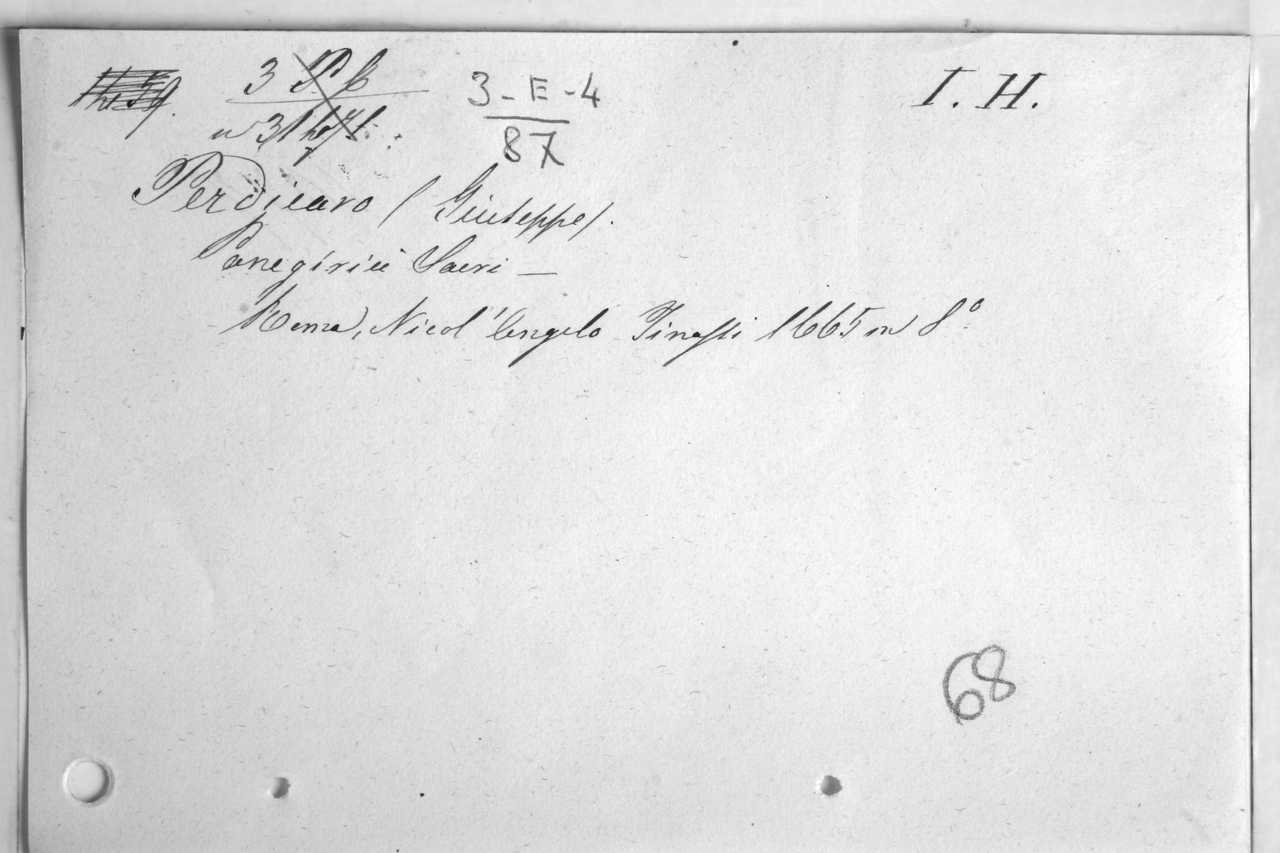 3-E-4
87
I. H.
Perdicaro (Giuseppe).
Panegirici Sacri —
Roma, Nicol'Angelo Tinassi 1665 in 8°
68